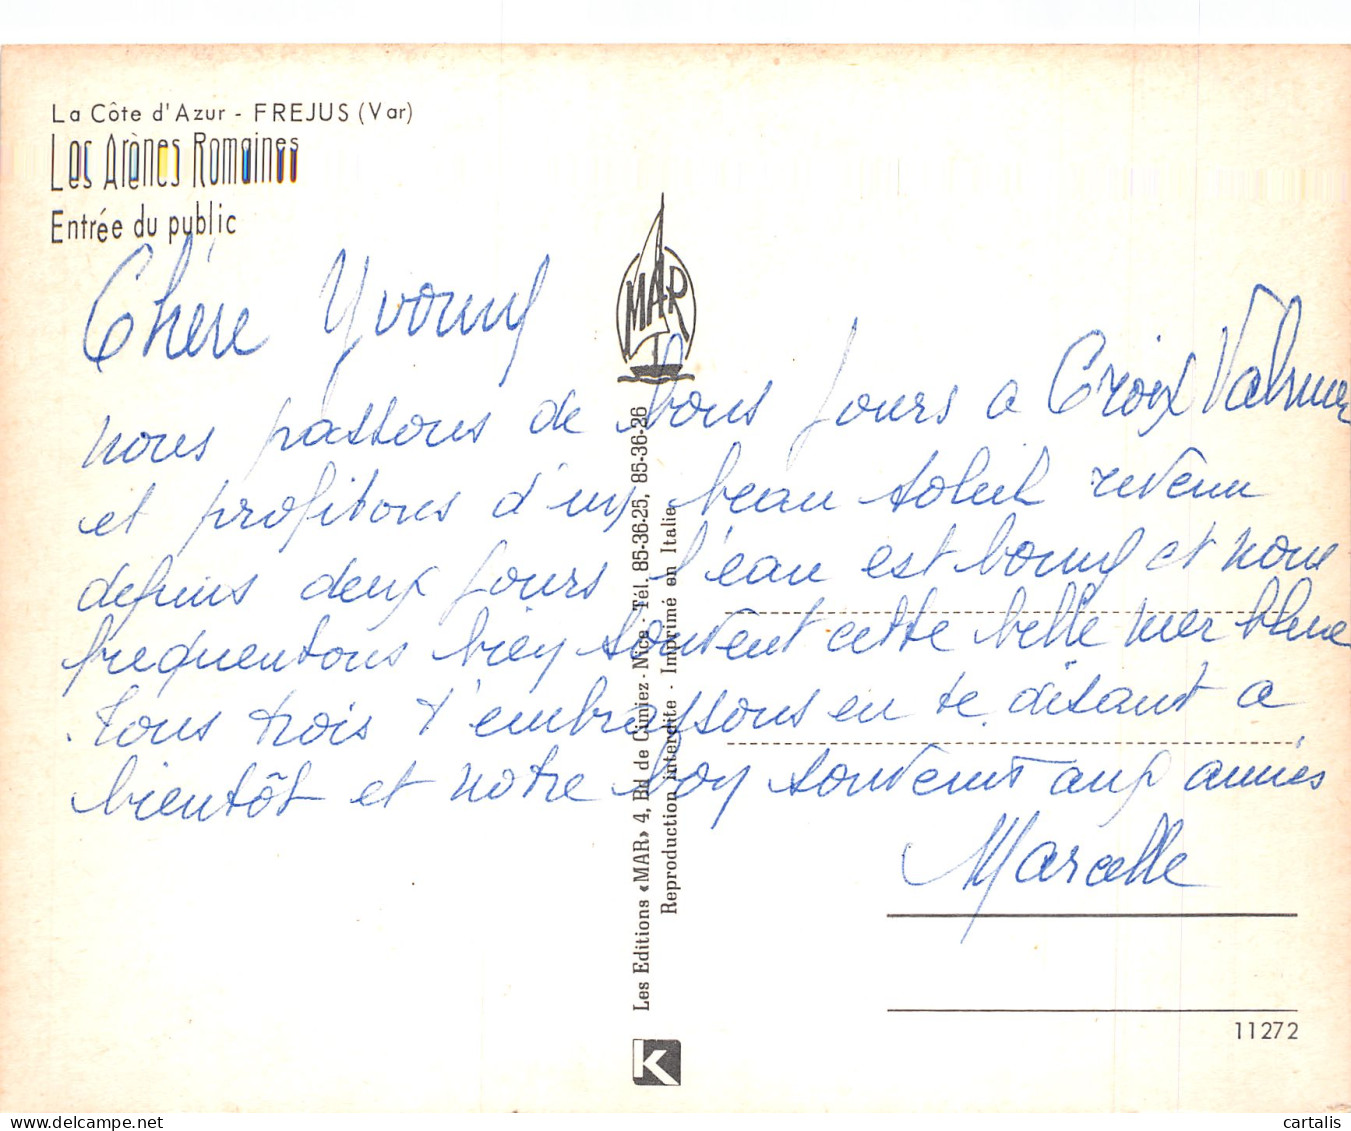 La Côte d'Azur - FREJUS (Var)
Les Arènes Romaines
Entrée du public
MAR
Chère Yvonne
nous passons de bons jours a Croix Valmer
et profitons d'un beau soleil revenu
depuis deux jours l'eau est bonne et nous
frequentons bien souvent cette belle mer bleue
Tous trois t'embrassons en te disant a
bientôt et notre bon souvenir aux amies
Marcelle
Les Editions «MAR» 4, Bd de Cimiez - Nice - Tél. 85-36-25, 85-36-26
Reproduction interdite - Imprimé en Italie
K
11272
www.delcampe.net
cartalis